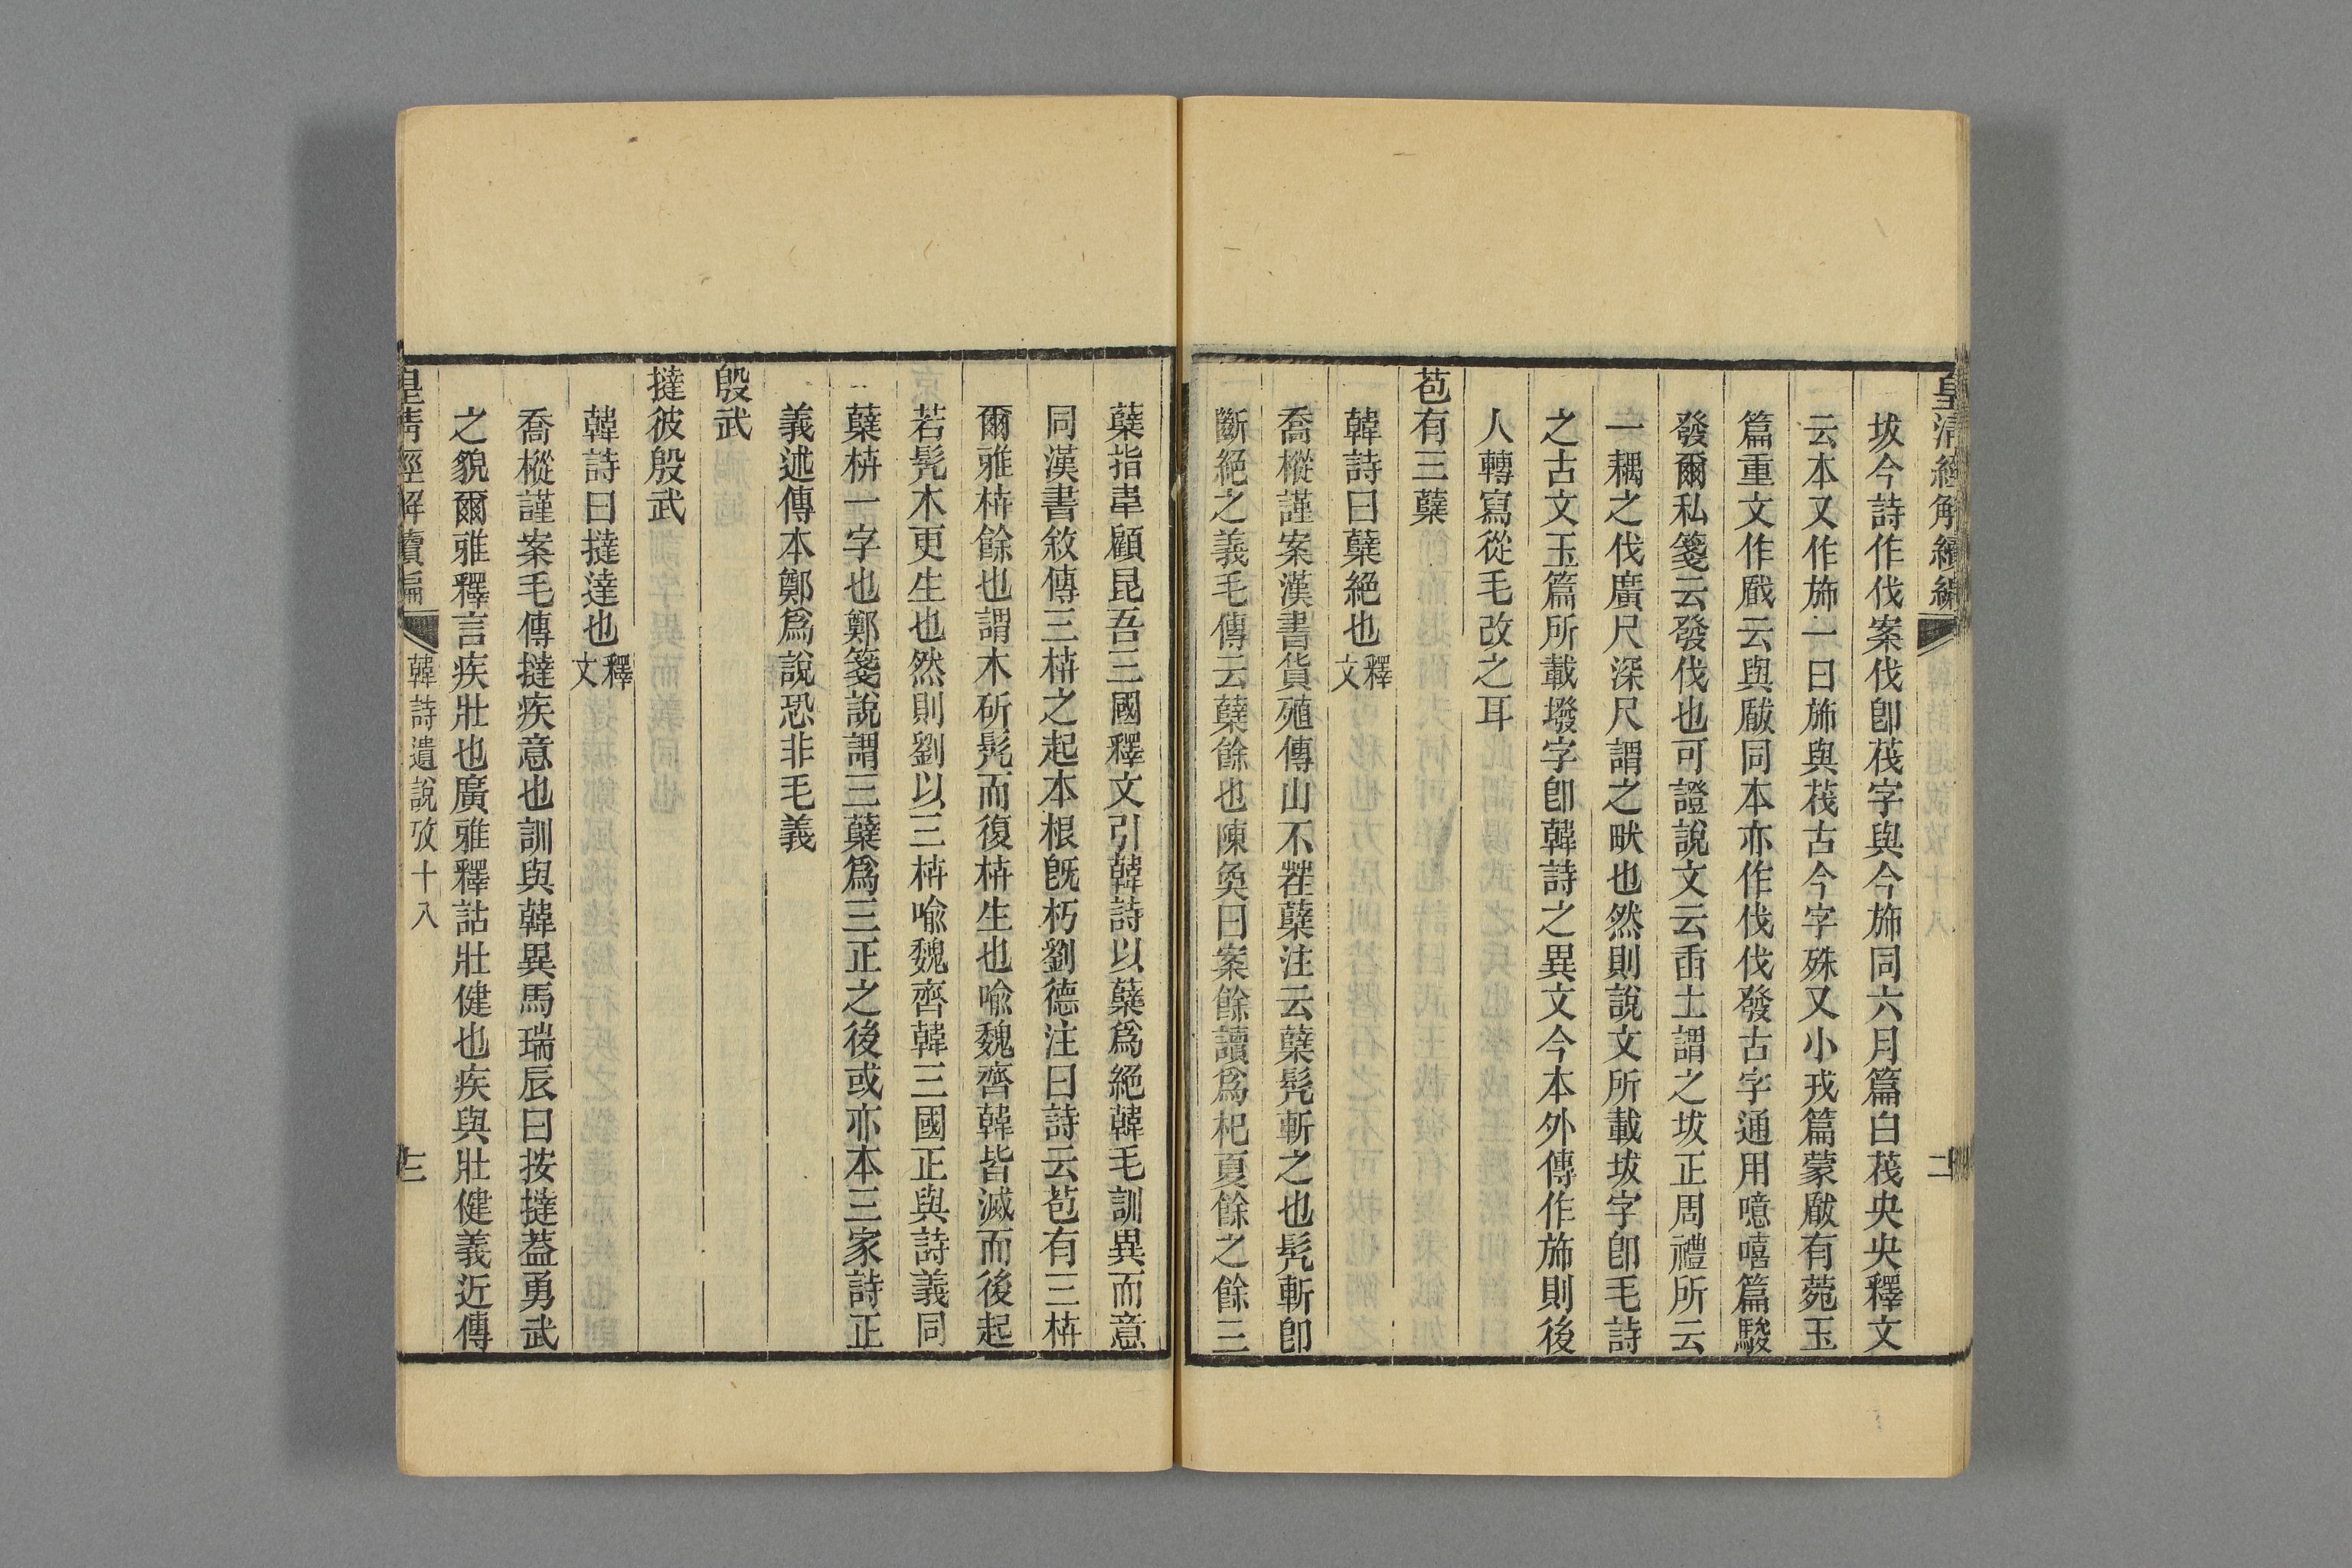 皇清經解續編
二
坺今詩作伐案伐卽茷字與今斾同六月篇白茷央央釋文
云本又作斾一曰斾與茷古今字殊又小戎篇蒙瞂有菀玉
篇重文作戫云與瞂同本亦作伐伐發古字通用噫嘻篇駿
發爾私箋云發伐也可證說文云臿土謂之坺正周禮所云
一耦之伐廣尺深尺謂之畎也然則說文所載坺字卽毛詩
之古文玉篇所載墢字卽韓詩之異文今本外傳作斾則後
人轉寫從毛改之耳
苞有三蘖
韓詩曰蘖絕也釋文
喬樅謹案漢書貨殖傳山不茬蘖注云蘖髠斬之也髠斬卽
斷絕之義毛傳云蘖餘也陳奐曰案餘讀爲杞夏餘之餘三
蘖指韋顧昆吾三國釋文引韓詩以蘖爲絕韓毛訓異而意
同漢書敘傳三枿之起本根旣朽劉德注曰詩云苞有三枿
爾雅枿餘也謂木斫髠而復枿生也喻魏齊韓皆滅而後起
若髠木更生也然則劉以三枿喻魏齊韓三國正與詩義同
蘖枿一字也鄭箋說謂三蘖爲三正之後或亦本三家詩正
義述傳本鄭爲說恐非毛義
殷武
撻彼殷武
韓詩曰撻達也釋文
喬樅謹案毛傳撻疾意也訓與韓異馬瑞辰曰按撻葢勇武
之貌爾雅釋言疾壯也廣雅釋詁壯健也疾與壯健義近傳
皇清經解續編
韓詩遺說攷十八
三